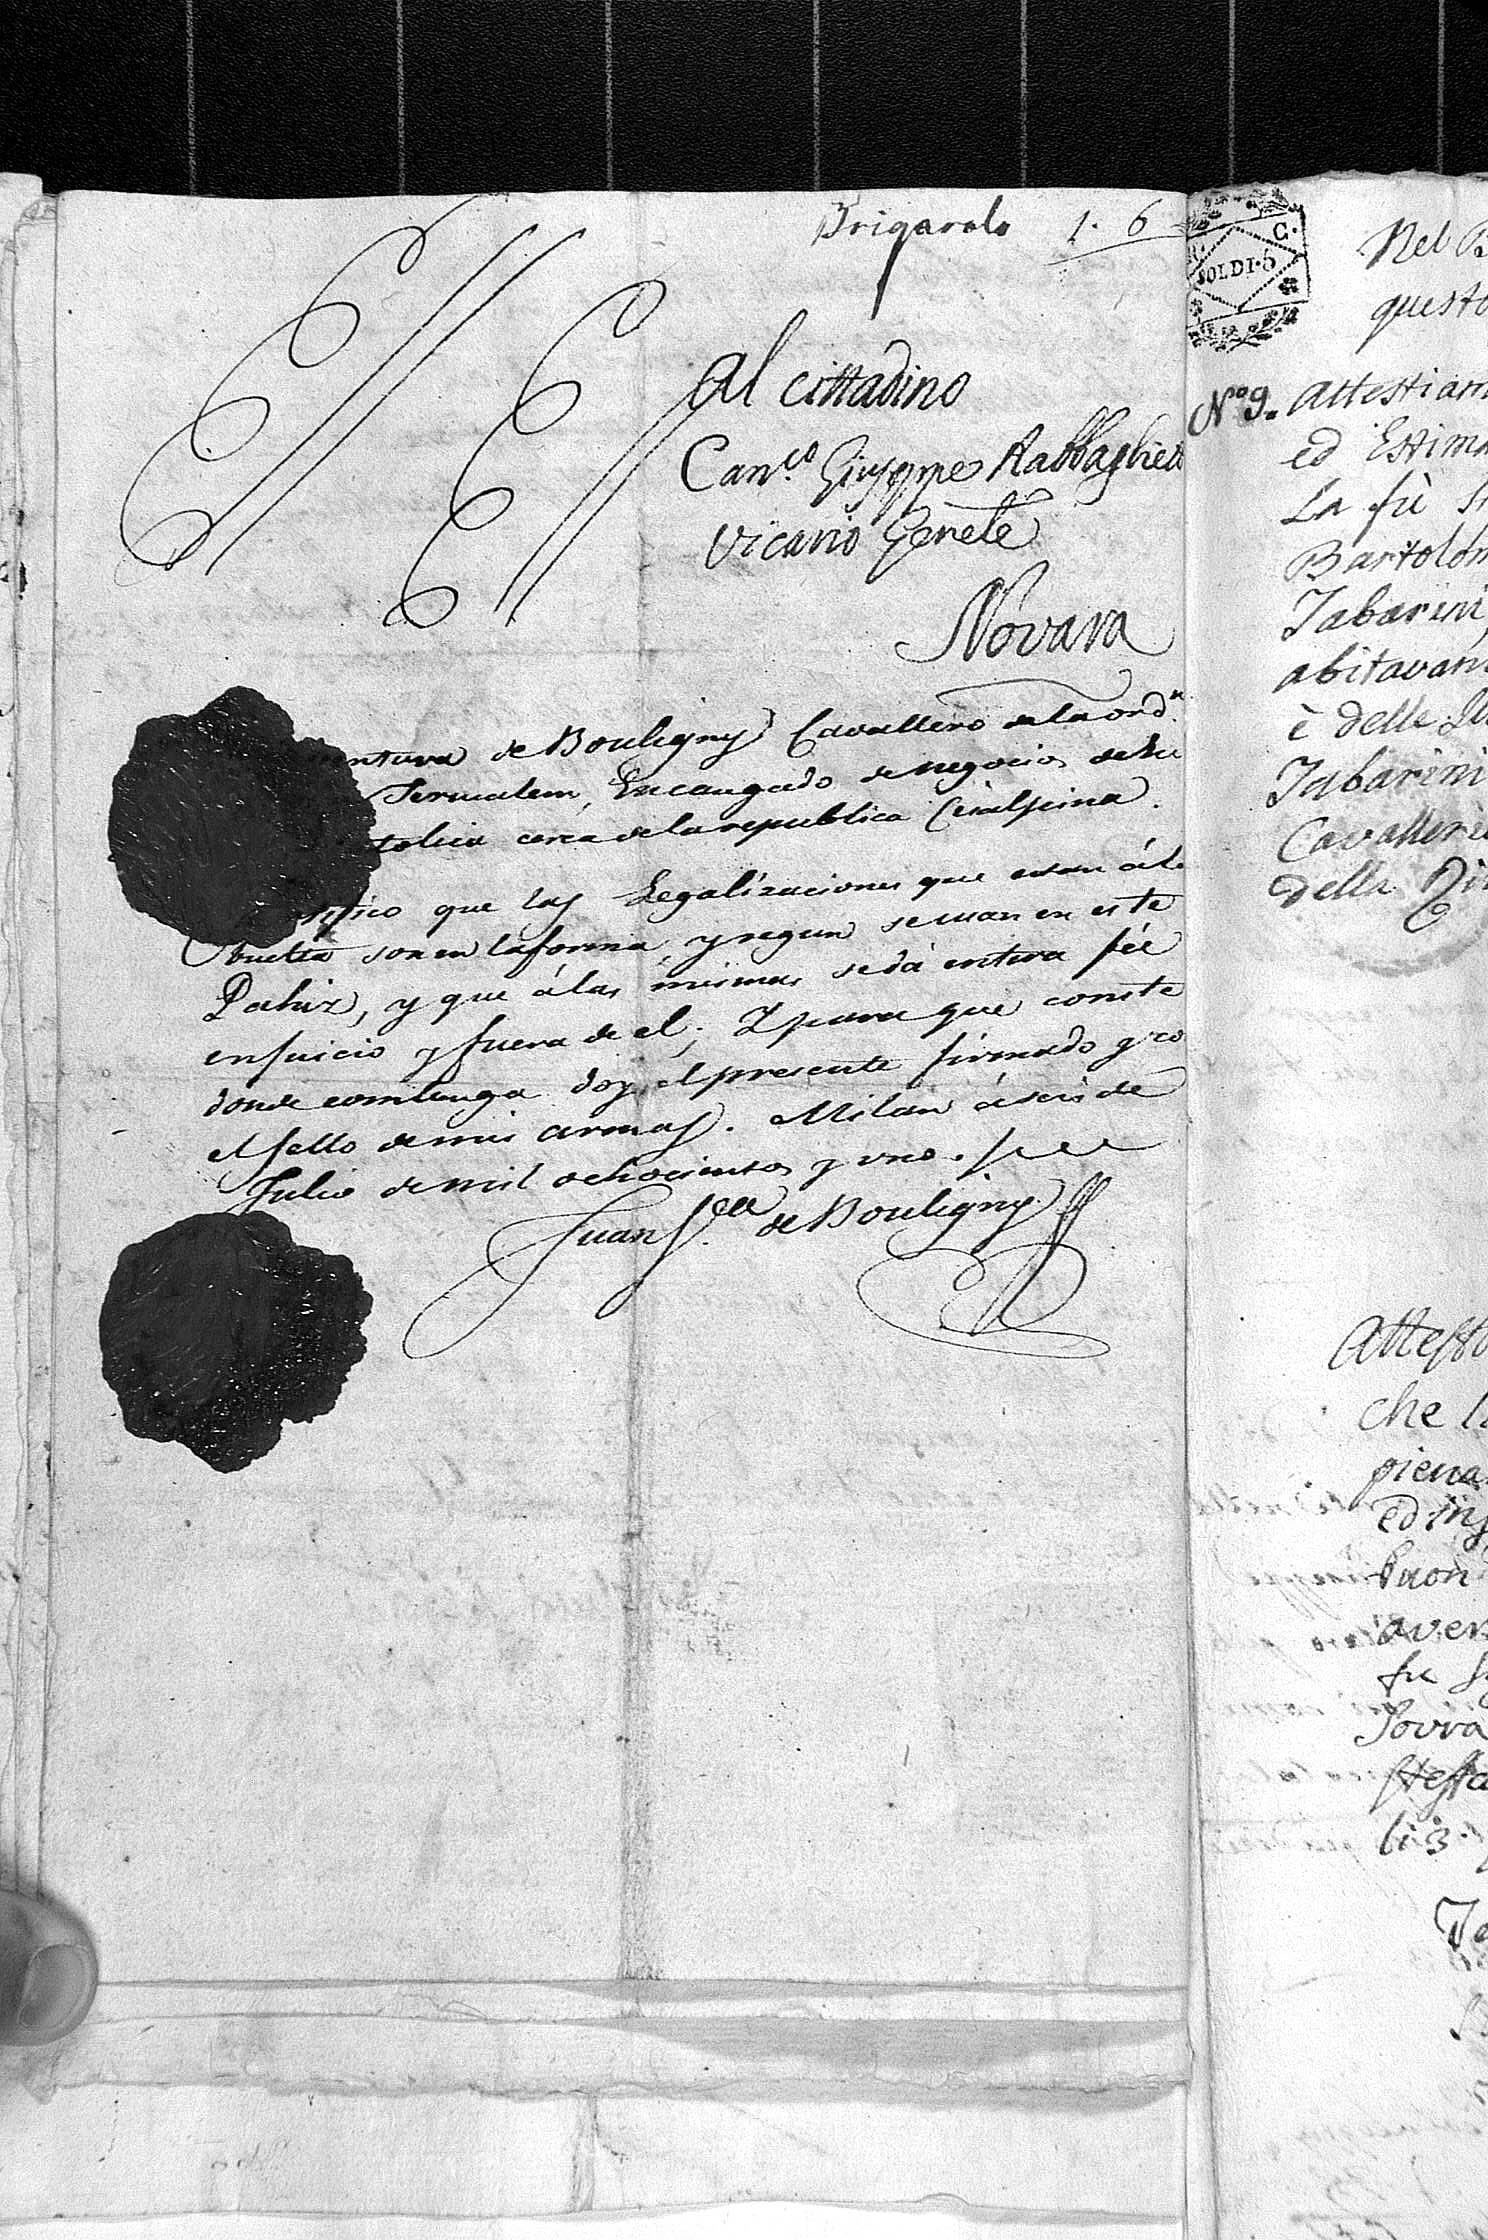 Brigarolo 1. 6
Al cittadino
Can.co Giuseppe Rabbaglieti
Vicario Gen̄ele
Novara
entura de Bouligny Cavallero de la ord.n
Jerusalem, Encargado de negocios de su
tolica cerca de la republica Cisalpina.
ifico que las Legalizaciones que estan á la
buelta son en la forma, y segun se usan en este
Pahiz, y que á las mismas se dá entera feé
en juicio y fuera de el; Y para que conste
donde combenga doy el presente firmado y co
el sello de mis armas. Milan á seis de
Julio de mil ochocientos y uno.
Juan de Bouligny
R. C.
SOLDI.5
Nel B
questo
N.o 9. Attestiam
ed Estim
La fù S
Bartolom
Tabarini,
abitavan
è delle
Tabarini
Cavalleri
della Di
Attesto
che l
piena
ed in
buon
aver
fu S
Sovra
stessa
li 3.